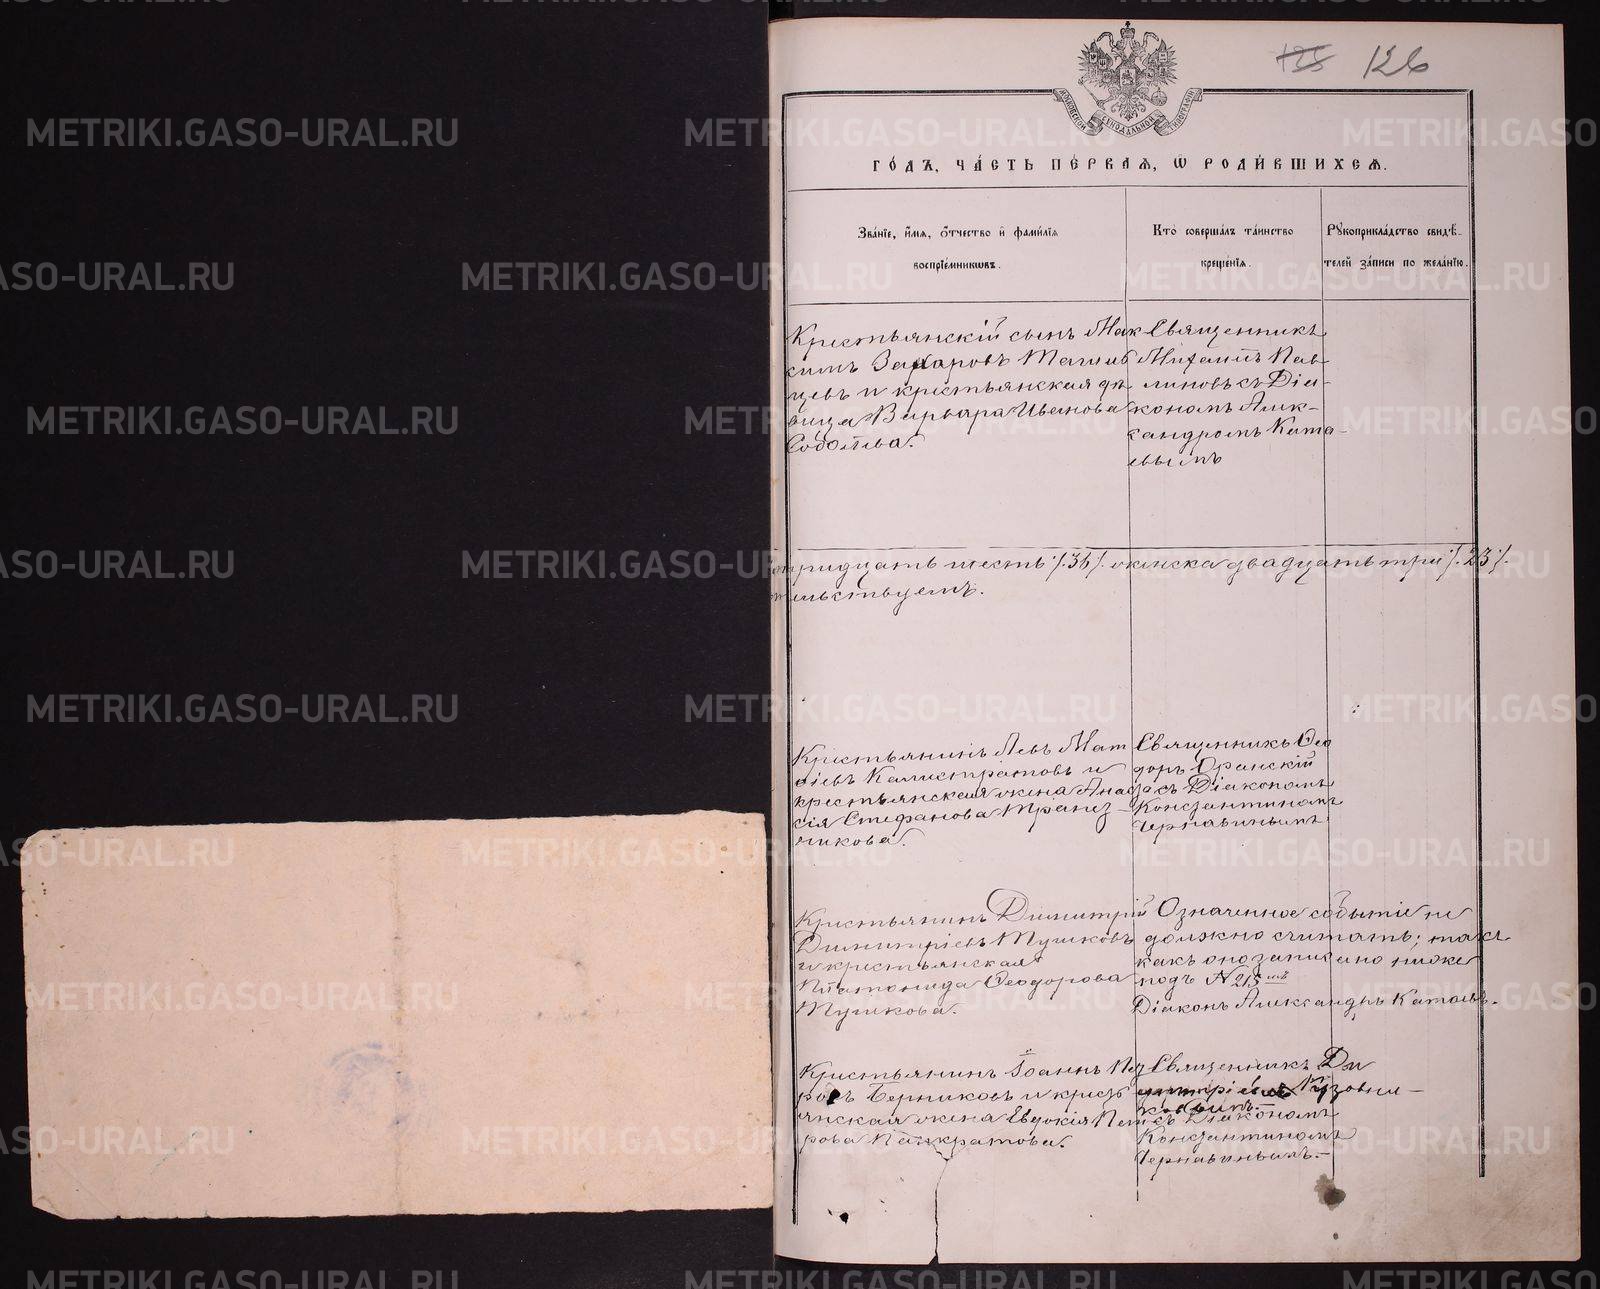 125 126
МОСКОВСКОЙ СѴНОДАЛЬНОЙ ТИПОГРАФІИ
ГОДЪ, ЧАСТЬ ПЕРВАЯ, Ѡ РОДИВШИХСЯ.
Званіе, имя, отчество и фамилія
воспріемниковъ.
Кто совершалъ таинство
крещенія.
Рукоприкладство свидѣ-
телей записи по желанію.
Крестьянскій сынъ Мак
симъ Захаровъ
и крестьянская дѣ
вица Варвара Иванова
Священникъ
Михаилъ Пав-
линовъ съ Діа-
кономъ Алек-
сандромъ Ката-
евымъ
тридцать шесть /.36/. женска двадцать три /.23/.
тельствуемъ.
Крестьянинъ Левъ Мат
ѳіевъ Калистратовъ и
крестьянская жена Анаста
сія Стефанова Трапез-
никова.
Священникъ Ѳео
доръ Оранскій
съ Діакономъ
Константиномъ
Чернавинымъ
Крестьянинъ Димитрій
Димитріевъ Тушковъ
и крестьянская
Платонида Ѳеодорова
Тушкова.
Означенное событіе не
должно считать; такъ
какъ оно записано ниже
подъ № 215 мъ
Діаконъ Александръ Катаевъ.
Крестьянинъ Іоаннъ
Берниковъ и кресть
янская жена Евдокія Пет
рова Панкратова.
Священникъ Ди
митрій Кузовни-
ковъ
съ Діакономъ
Константиномъ
Чернавинымъ.
METRIKI.GASO-URAL.RU